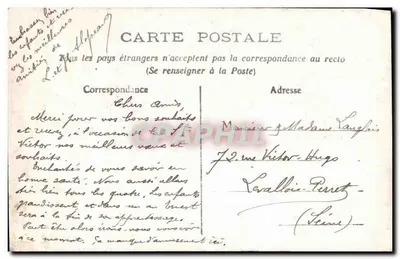 Embrassez bien
les enfants et recevez
les meilleures
amitiés de
L et J
CARTE POSTALE
Tous les pays étrangers n'acceptent pas la correspondance au recto
(Se renseigner à la Poste)
Correspondance
Adresse
Chers Amis,
Merci pour vos bons souhaits
et recevez à l'occasion de la St
Victor nos meilleurs vœux et
souhaits.
Enchantés de vous savoir en
bonne santé. Nous aussi allons
très bien tous les quatre, les enfants
grandissent et dans un an
sera à la fin de son apprentissage.
Peut être alors irons nous vous voir
à ce moment. Ça manque d'amusement ici.
Monsieur & Madame Langlois
72 rue Victor-Hugo
Levallois-Perret
(Seine)
CPARHIL